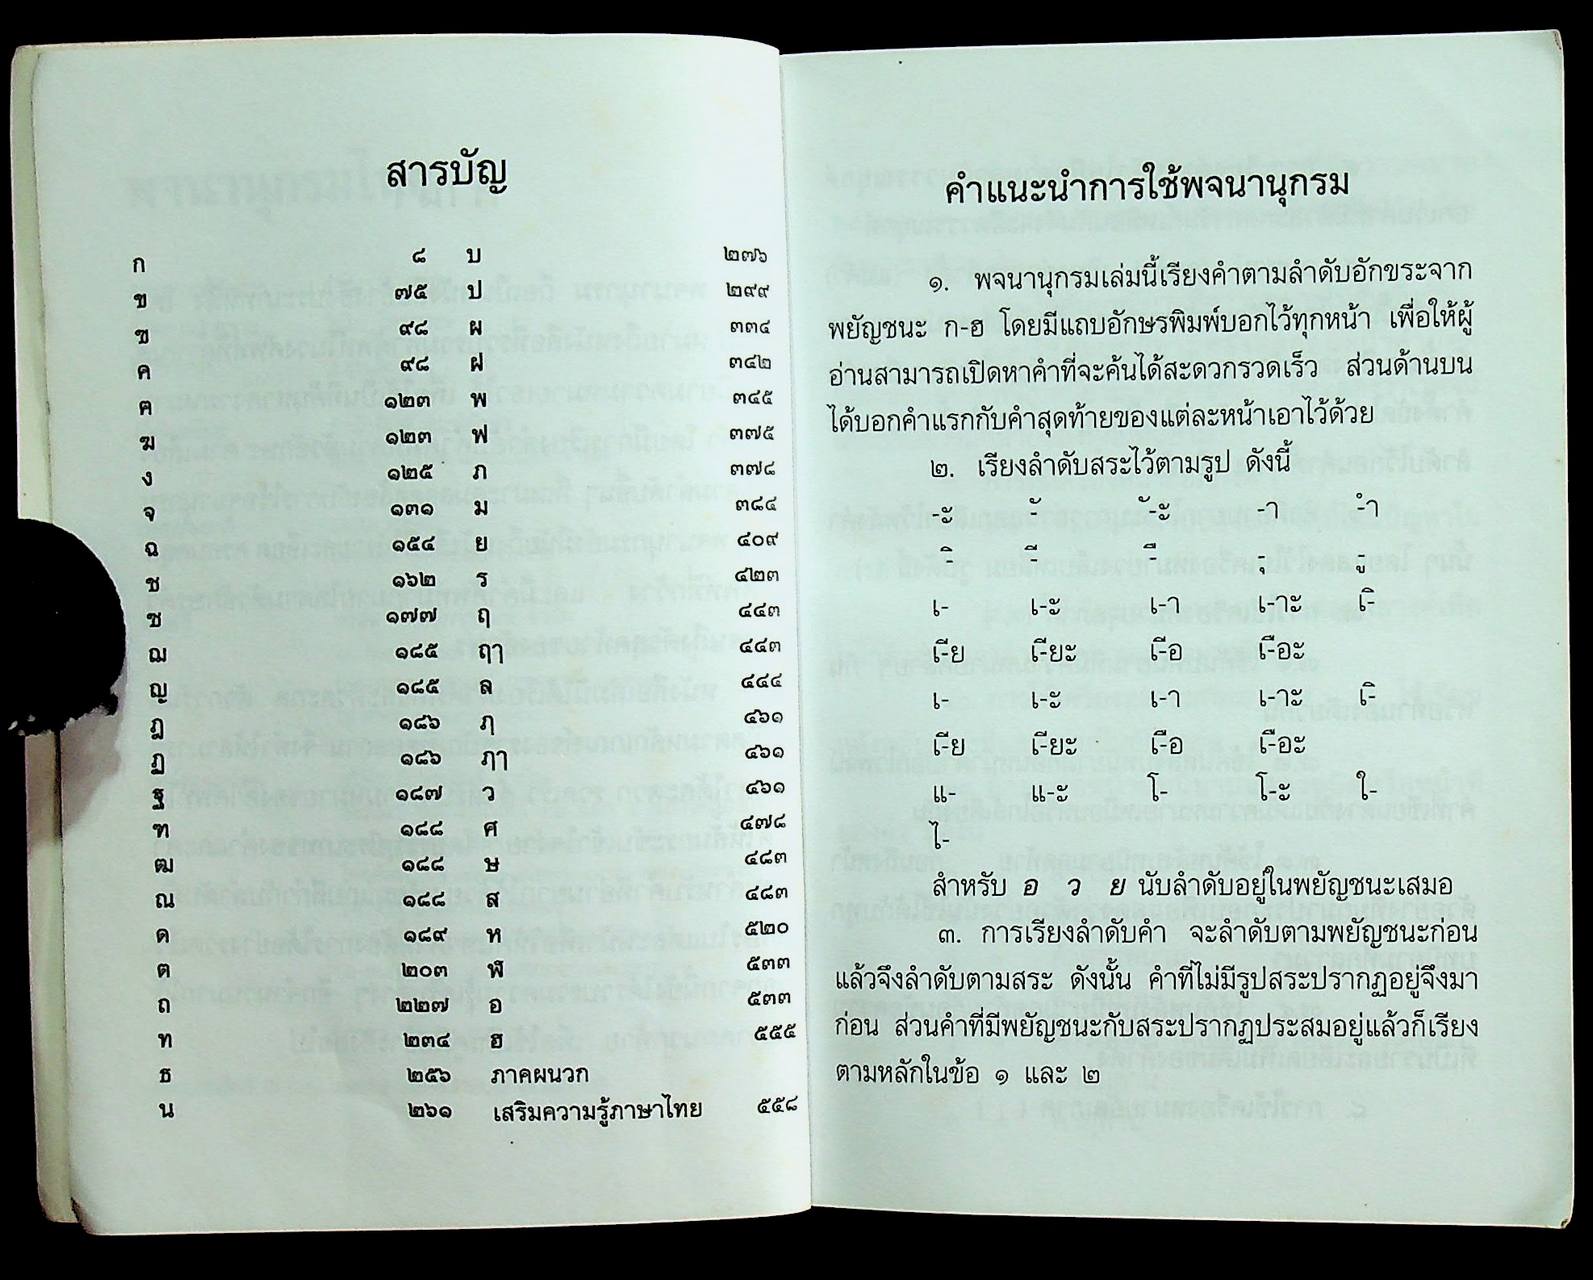 สารบัญ
ก ๘ บ ๒๗๖
ข ๗๕ ป ๒๙๙
ฃ ๙๘ ผ ๓๓๔
ค ๙๘ ฝ ๓๔๒
ฅ ๑๒๓ พ ๓๔๕
ฆ ๑๒๓ ฟ ๓๗๕
ง ๑๒๕ ภ ๓๗๘
จ ๑๓๑ ม ๓๘๔
ฉ ๑๕๔ ย ๔๐๙
ช ๑๖๒ ร ๔๒๓
ซ ๑๗๗ ฤ ๔๔๓
ฌ ๑๘๕ ฤๅ ๔๔๓
ญ ๑๘๕ ล ๔๔๔
ฎ ๑๘๖ ฦ ๔๖๑
ฏ ๑๘๖ ฦๅ ๔๖๑
ฐ ๑๘๗ ว ๔๖๑
ฑ ๑๘๘ ศ ๔๗๘
ฒ ๑๘๘ ษ ๔๘๓
ณ ๑๘๘ ส ๔๘๓
ด ๑๘๙ ห ๕๒๐
ต ๒๐๓ ฬ ๕๓๓
ถ ๒๒๗ อ ๕๓๓
ท ๒๓๔ ฮ ๕๕๕
ธ ๒๕๖ ภาคผนวก
น ๒๖๑ เสริมความรู้ภาษาไทย ๕๕๘
คำแนะนำการใช้พจนานุกรม
๑. พจนานุกรมเล่มนี้เรียงคำตามลำดับอักขระจาก
พยัญชนะ ก-ฮ โดยมีแถบอักษรพิมพ์บอกไว้ทุกหน้า เพื่อให้ผู้
อ่านสามารถเปิดหาคำที่จะค้นได้สะดวกรวดเร็ว ส่วนด้านบน
ได้บอกคำแรกกับคำสุดท้ายของแต่ละหน้าเอาไว้ด้วย
๒. เรียงลำดับสระไว้ตามรูป ดังนี้
-ะ -ั -ัะ -า -ำ
-ิ -ี -ื -ุ -ู
เ- เ-ะ เ-า เ-าะ เ-ิ
เ-ีย เ-ียะ เ-ือ เ-ือะ
เ- เ-ะ เ-า เ-าะ เ-ิ
เ-ีย เ-ียะ เ-ือ เ-ือะ
แ- แ-ะ โ- โ-ะ ใ-
ไ-
สำหรับ อ ว ย นับลำดับอยู่ในพยัญชนะเสมอ
๓. การเรียงลำดับคำ จะลำดับตามพยัญชนะก่อน
แล้วจึงลำดับตามสระ ดังนั้น คำที่ไม่มีรูปสระปรากฏอยู่จึงมา
ก่อน ส่วนคำที่มีพยัญชนะกับสระปรากฏประสมอยู่แล้วก็เรียง
ตามหลักในข้อ ๑ และ ๒